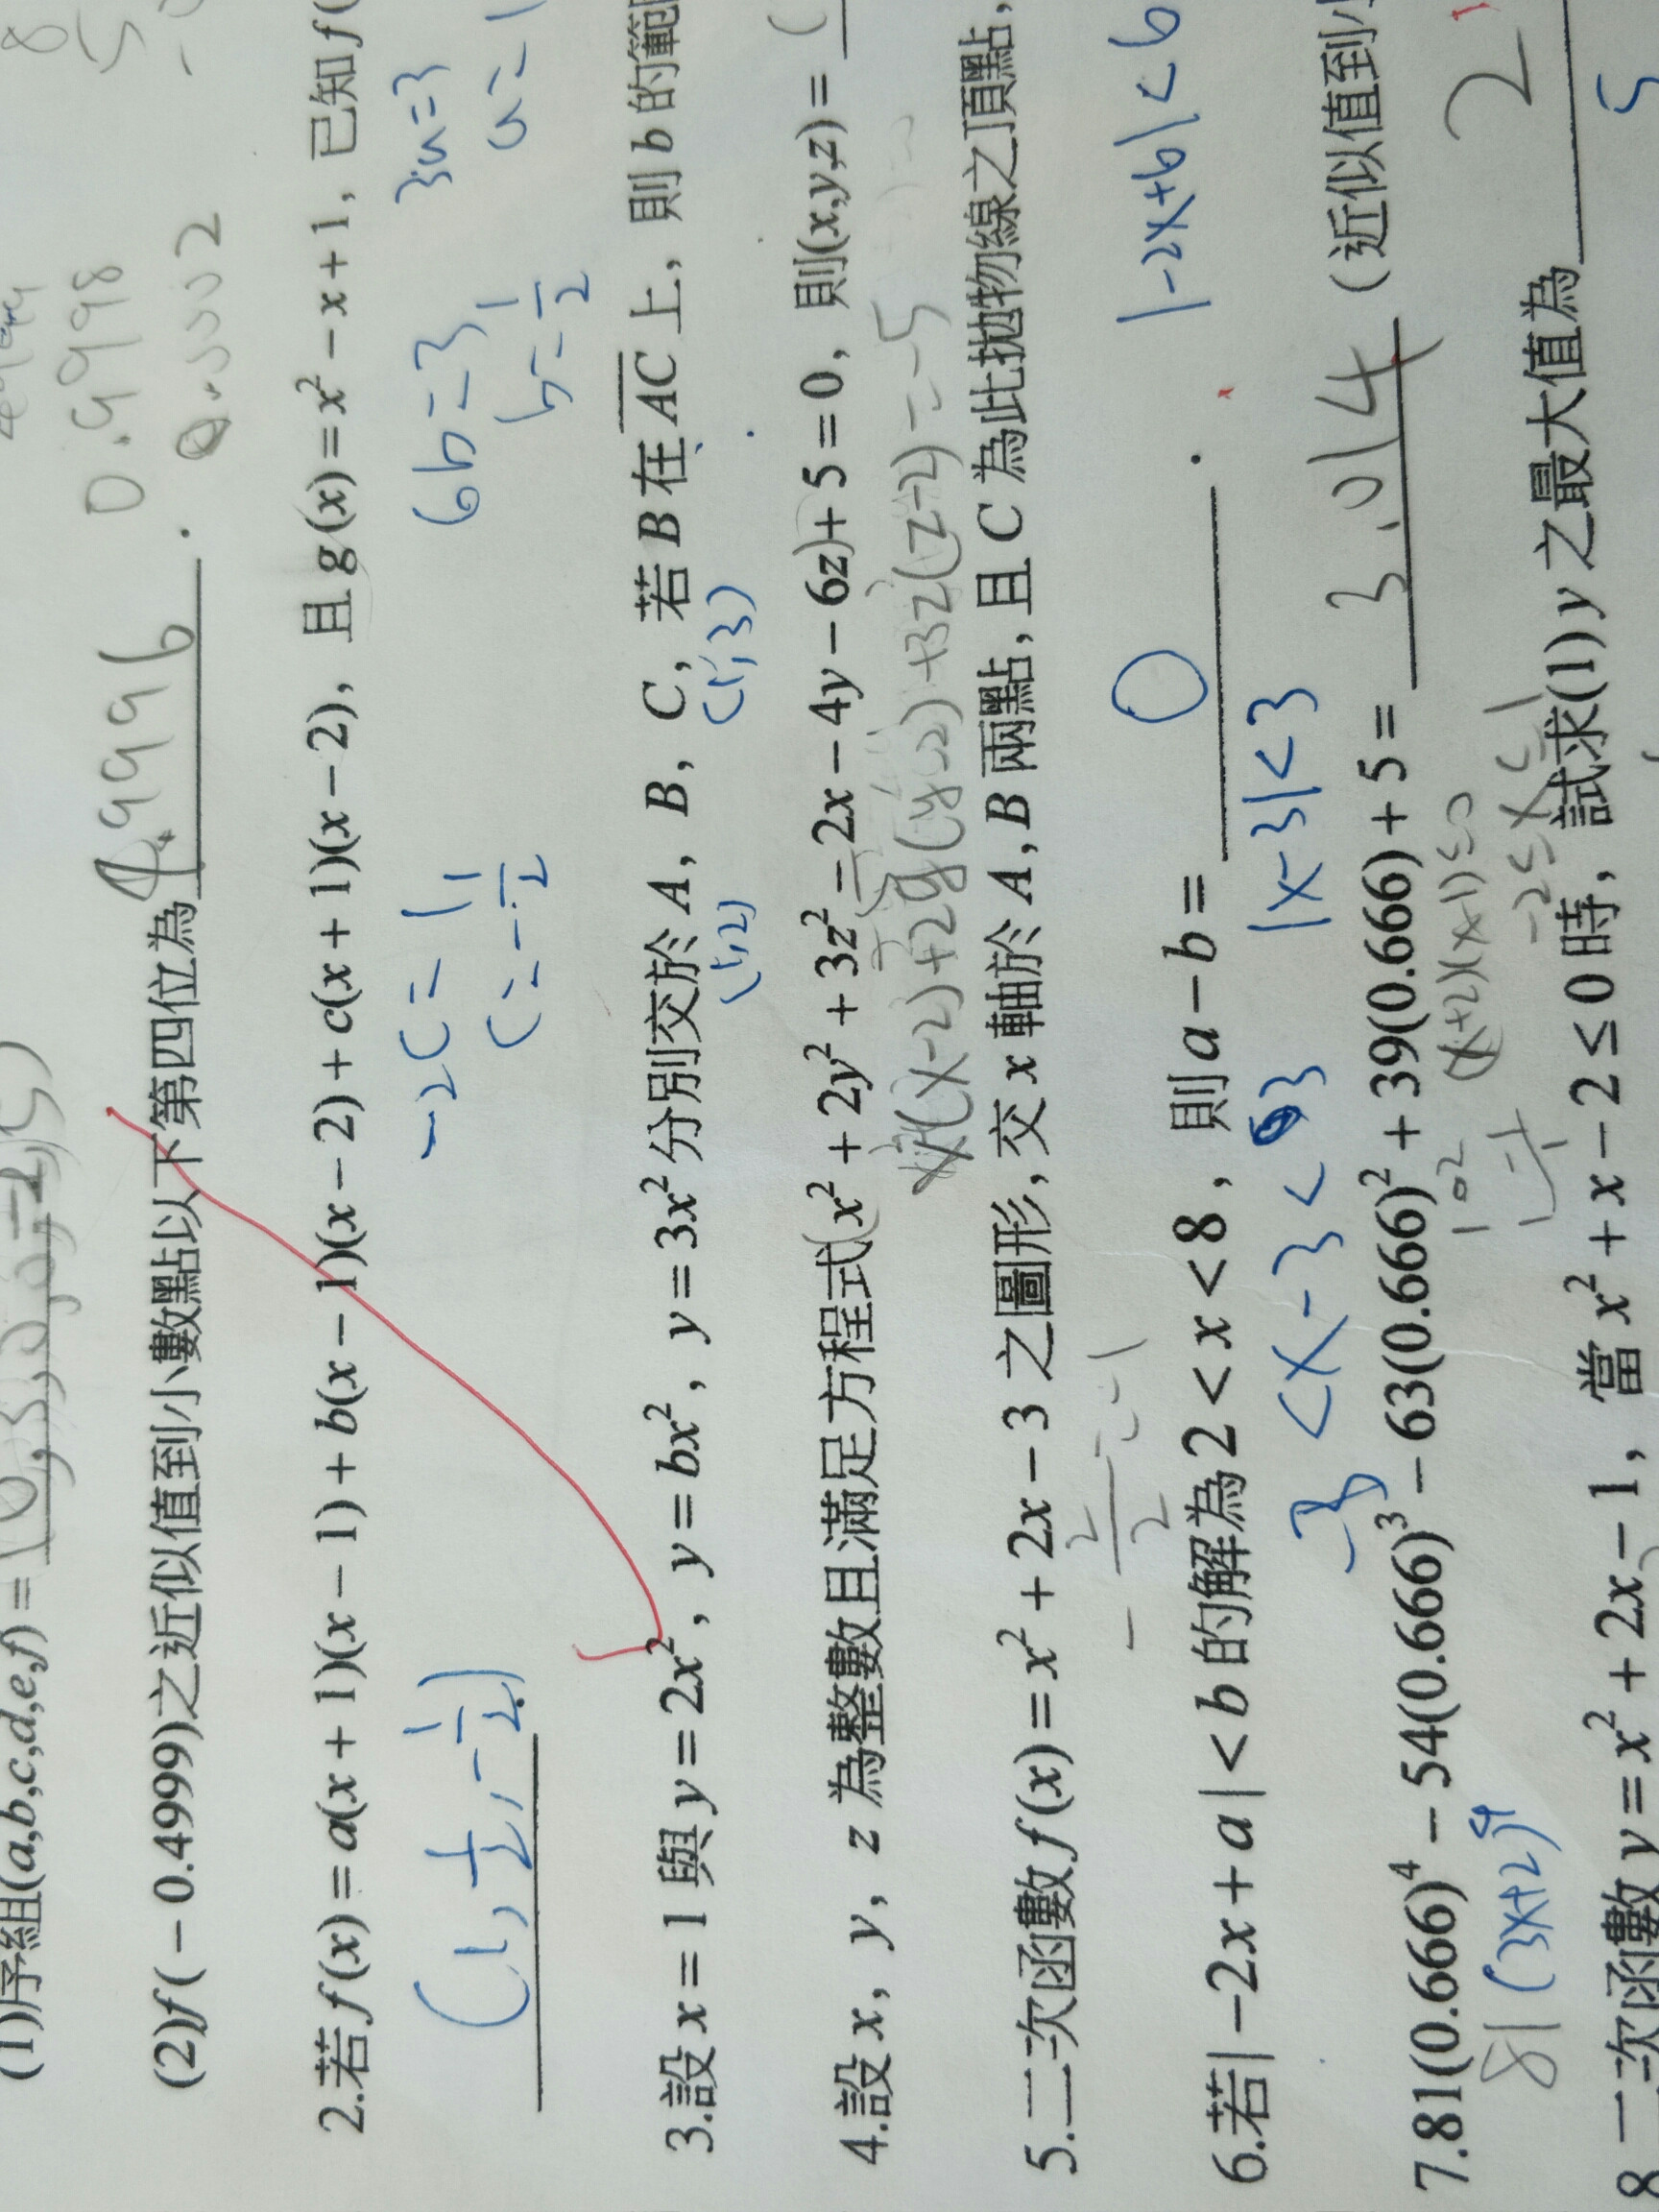 8
5
0.9998
0.0002
(1)序組(a,b,c,d,e,f) =
(2)f(－0.4999)之近似值到小數點以下第四位為 4.9996 .
2.若f(x) = a(x + 1)(x − 1) + b(x − 1)(x − 2) + c(x + 1)(x − 2)，且 g(x) = x² − x + 1，已知 f(
(1, 1/2, -1/2) -2c=1 6b=3 3a=3
c=-1/2 b=1/2 a=1
3.設 x = 1 與 y = 2x²，y = bx²，y = 3x² 分別交於 A，B，C，若 B 在 AC 上，則 b 的範
(1,2) (1,3)
4.設 x，y，z 為整數且滿足方程式 x² + 2y² + 3z² − 2x − 4y − 6z + 5 = 0，則(x,y,z) = (
x(x-2)+2y(y-2)+3z(z-2)=-5
5.二次函數 f(x) = x² + 2x − 3 之圖形, 交 x 軸於 A , B 兩點, 且 C 為此拋物線之頂點,
-2/2=-1
6.若| − 2x + a | < b 的解為 2 < x < 8，則 a − b = 0 .
|-2x+b|<6
-3<x-3<3 |x-3|<3
7.81(0.666)⁴ − 54(0.666)³ − 63(0.666)² + 39(0.666) + 5 = 3.014 (近似值到小
81(3x+2)⁴ (x+2)(x-1)≤0
-2≤x≤1
8.二次函數 y = x² + 2x − 1，當 x² + x − 2 ≤ 0 時，試求(1) y 之最大值為 2
5